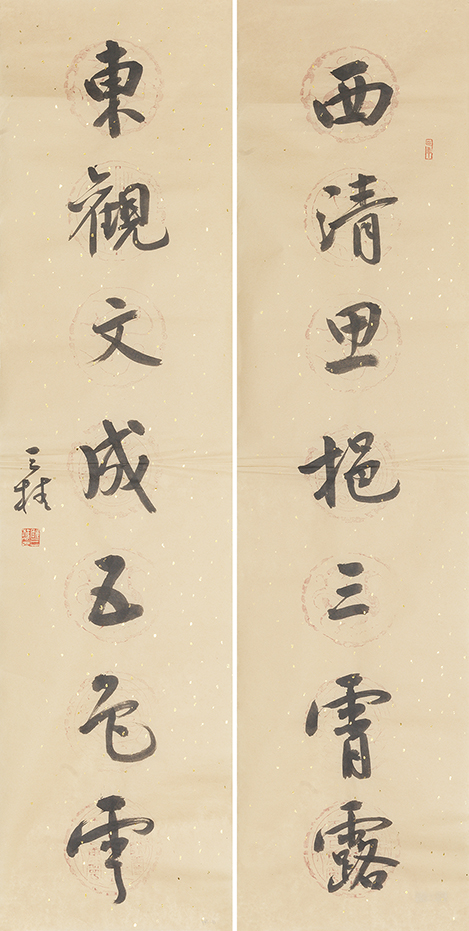 西清思挹三霄露
東觀文成五色雲